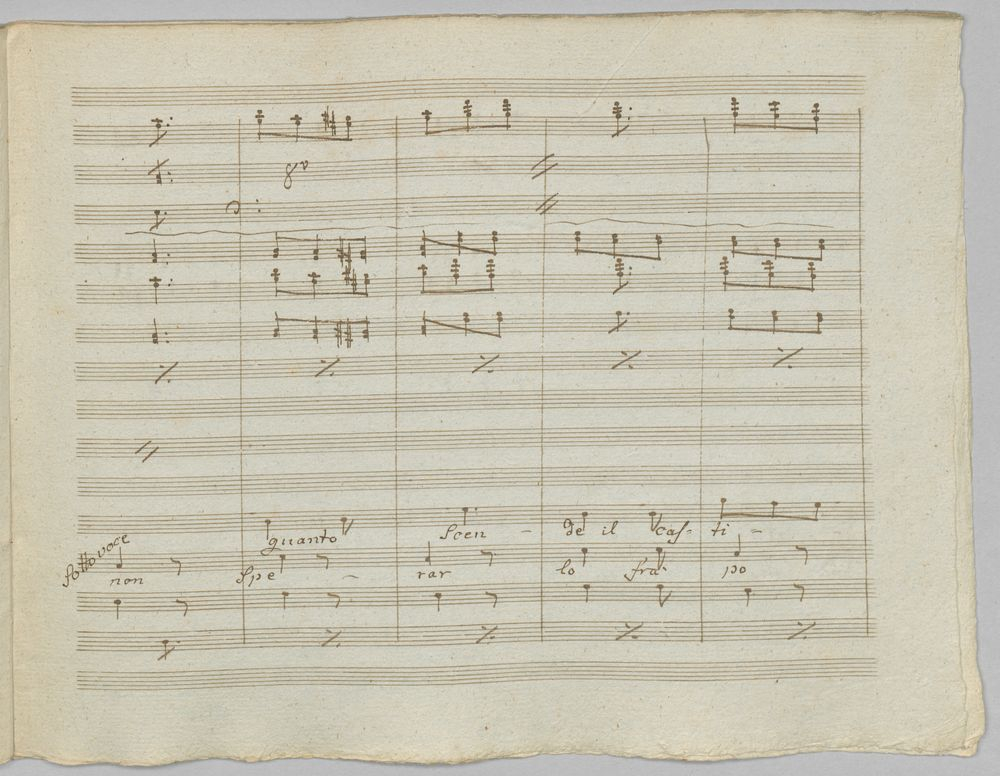 8v
quanto Scen - de il cas- ti -
Sotto voce
non Spe - rar lo fra- po